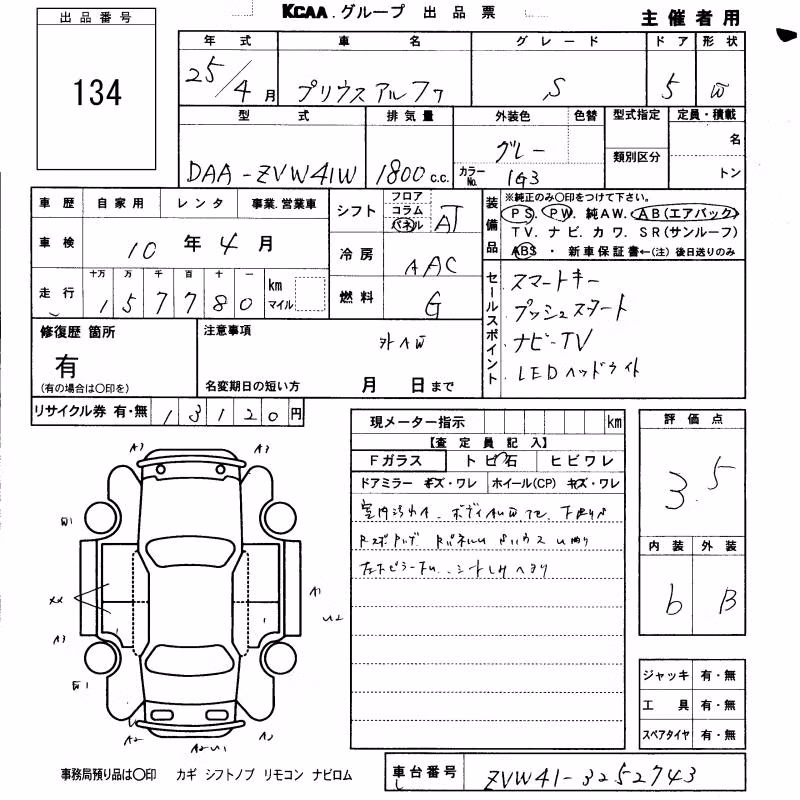 KCAA.グループ 出品票
主催者用
出品番号
134
年式 車名 グレード ドア 形状
25/4月 プリウスアルファ S 5 W
型式 排気量 外装色 色替 型式指定 定員・積載
DAA-ZVW41W 1800c.c. グレー 名
カラーNo. 1G3 類別区分 トン
車歴 自家用 レンタ 事業.営業車
車検 10年4月
走行 十万 万 千 百 十 一
157780 km マイル
シフト フロア コラム パネル AT
冷房 AAC
燃料 G
装備品 ※純正のみ○印をつけて下さい。
PS. PW. 純AW. AB(エアバック)
TV. ナビ. カワ. SR(サンルーフ)
ABS ・ 新車保証書←(注)後日送りのみ
セールスポイント
スマートキー
プッシュスタート
ナビ-TV
LEDヘッドライト
修復歴 箇所
有
(有の場合は○印を)
注意事項
外AW
名変期日の短い方 月 日まで
リサイクル券 有・無 13120円
現メーター指示 km
【査定員記入】
Fガラス トビ石 ヒビワレ
ドアミラー キズ・ワレ ホイール(CP) キズ・ワレ
評価点
3.5
内装 外装
b B
A3 A3
XX
A3
A1
U2
A2 A2U1 A3
1 1
ジャッキ 有・無
工具 有・無
スペアタイヤ 有・無
事務局預り品は○印 カギ シフトノブ リモコン ナビロム
車台番号 ZVW41-3252743